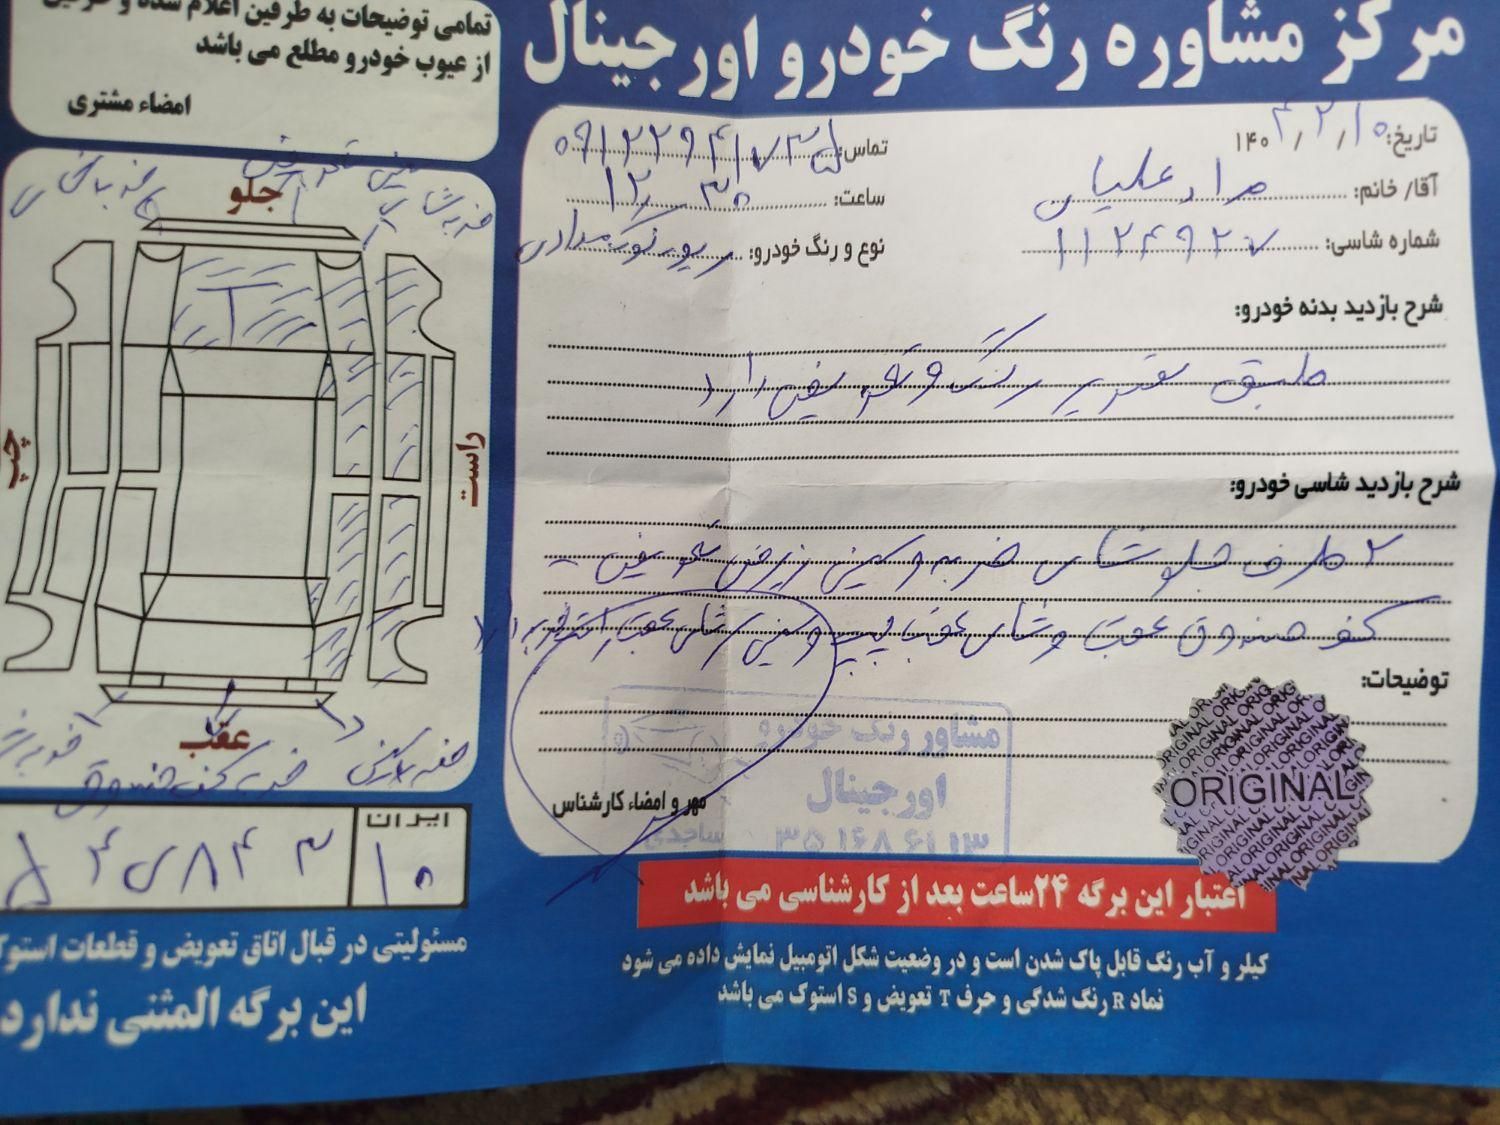 مرکز مشاوره رنگ خودرو اورجینال
تاریخ: ۱۴۰۴/۲/۱۰
تماس: ۰۹۱۲۲۹۴۱۷۳۵
آقا/ خانم: مرادعلیان
ساعت: ۱۲/۳۰
شماره شاسی: ۱۱۲۴۹۲۷
نوع و رنگ خودرو:
شرح بازدید بدنه خودرو:
طبق تصویر رنگ و تعویض دارد
شرح بازدید شاسی خودرو:
۲ طرف جلو شاسی ضربه و سینی زیر فن تعویض -
کف صندوق عقب و شاسی عقب چپ و سینی
توضیحات:
مشاور رنگ خودرو
اورجینال
ساجدی
مهر و امضاء کارشناس
ORIGINAL
اعتبار این برگه ۲۴ساعت بعد از کارشناسی می باشد
کیلر و آب رنگ قابل پاک شدن است و در وضعیت شکل اتومبیل نمایش داده می شود
نماد R رنگ شدگی و حرف T تعویض و S استوک می باشد
تمامی توضیحات به طرفین اعلام شده و طرفین
از عیوب خودرو مطلع می باشد
امضاء مشتری
جلو
T
چپ
راست
عقب
ضربه کف صندوق
ایران
۱۰
مسئولیتی در قبال اتاق تعویض و قطعات استوک
این برگه المثنی ندارد